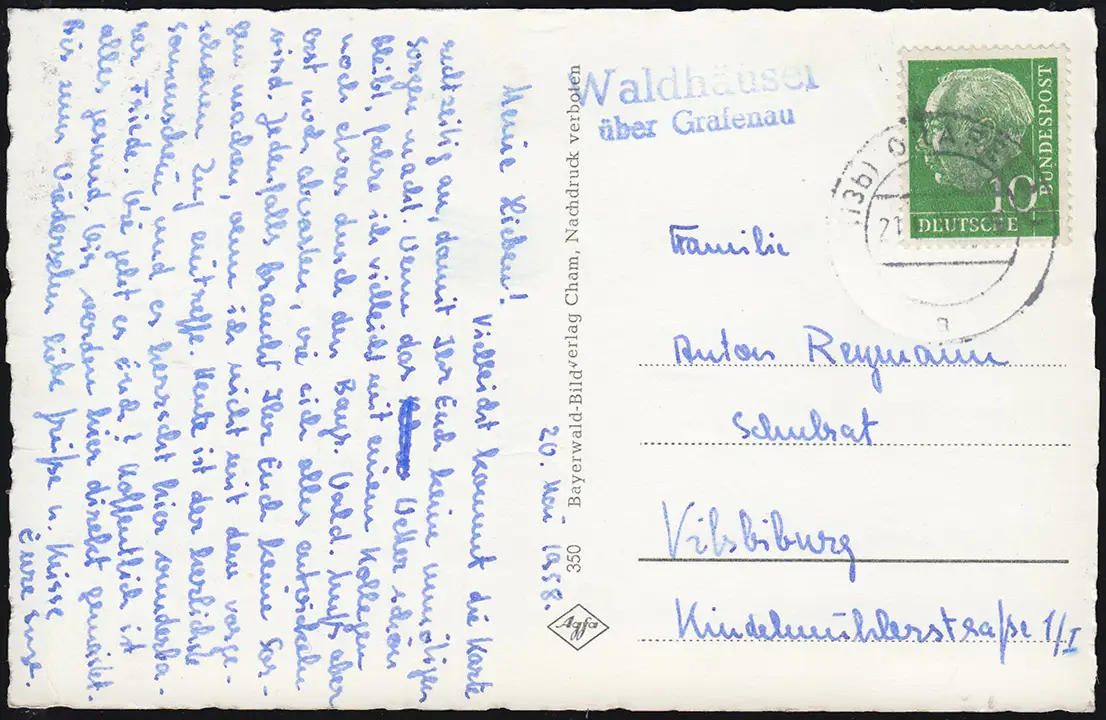 20. Mai 1958.
Meine Lieben! Vielleicht kommt die Karte
rechtzeitig an, damit Ihr Euch keine unnötigen
Sorgen macht. Wenn das Wetter schön
bleibt, fahre ich vielleicht mit einem Kollegen
noch etwas durch den Bayr. Wald. Muß aber
erst noch abwarten, wie sich alles entwickeln
wird. Jedenfalls braucht Ihr Euch keine Sor-
gen machen, wenn ich nicht mit dem vorge-
sehenen Zug eintreffe. Heute ist der herrlichste
Sonnenschein und es herrscht hier wunderba-
rer Friede. Wie geht es Euch? Hoffentlich ist
alles gesund. Wir werden hier direkt gemästet.
Bis zum Wiedersehen liebe Grüße u. Küsse
Eure
350 Bayerwald-Bild-verlag Cham, Nachdruck verboten
Agfa
Waldhäuser
über Grafenau
(13b)
21.
a
10
DEUTSCHE
BUNDESPOST
Familie
Anton Reymann
Schulrat
Vilsbiburg
Kindelmühlerstraße 1/I